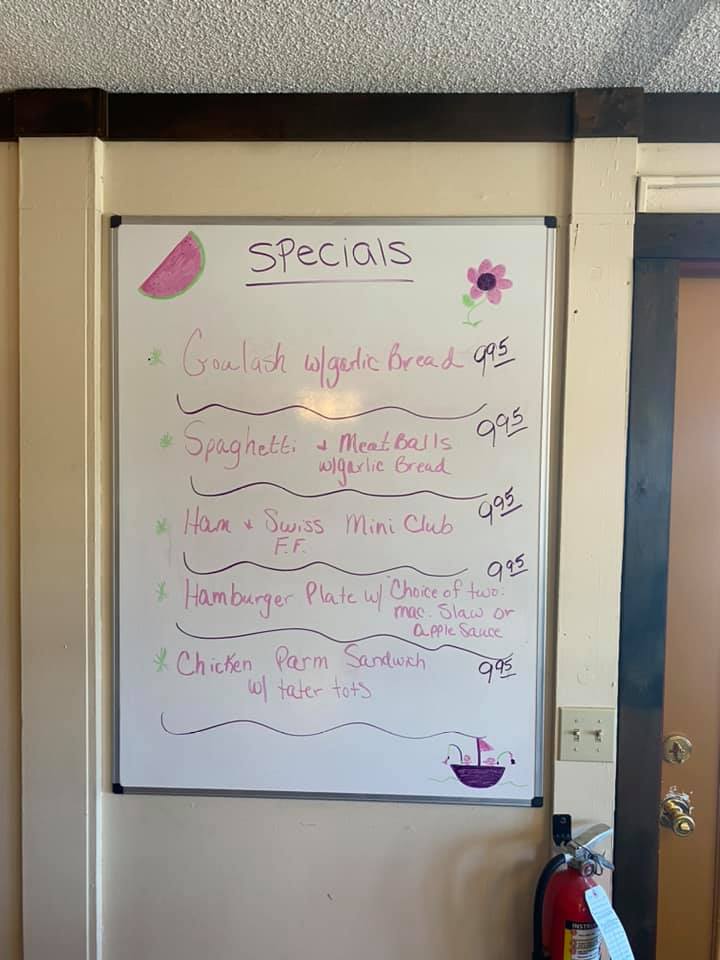 Specials
Goulash w/garlic Bread 995
Spaghetti & Meat Balls 995
w/garlic Bread
Ham & Swiss Mini Club 995
F.F.
Hamburger Plate w/ Choice of two: 995
mac. Slaw or
apple Sauce
Chicken Parm Sandwich 995
w/ tater tots